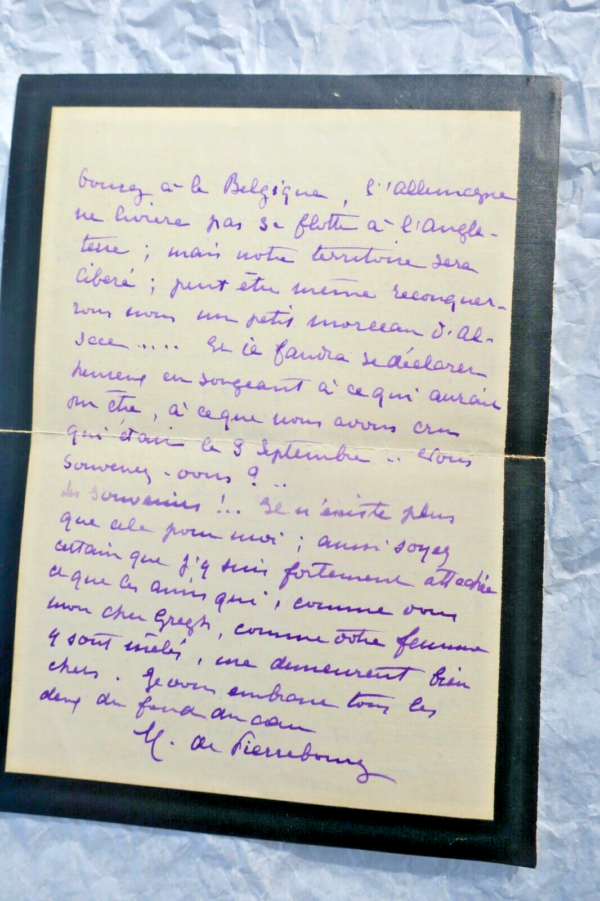 à la Belgique, l'Allemagne
ne livrera pas sa flotte à l'Angle-
terre ; mais notre territoire sera
libéré ; peut être même reconquer-
rons nous un petit morceau d'Al-
sace .... Et il faudra se déclarer
heureux en songeant à ce qui aurait
pu être, à ce que nous avons cru
qui était le 3 Septembre .. Vous
Souvenez-vous ? ..
Les souvenirs !.. Il n'existe plus
que cela pour moi ; aussi soyez
certain que j'y suis fortement attachée
et que les amis qui, comme vous
mon cher Gregh, comme votre femme
y sont mêlés, me demeurent bien
chers. Je vous embrasse tous les
deux du fond du cœur
M. de Pierrebourg